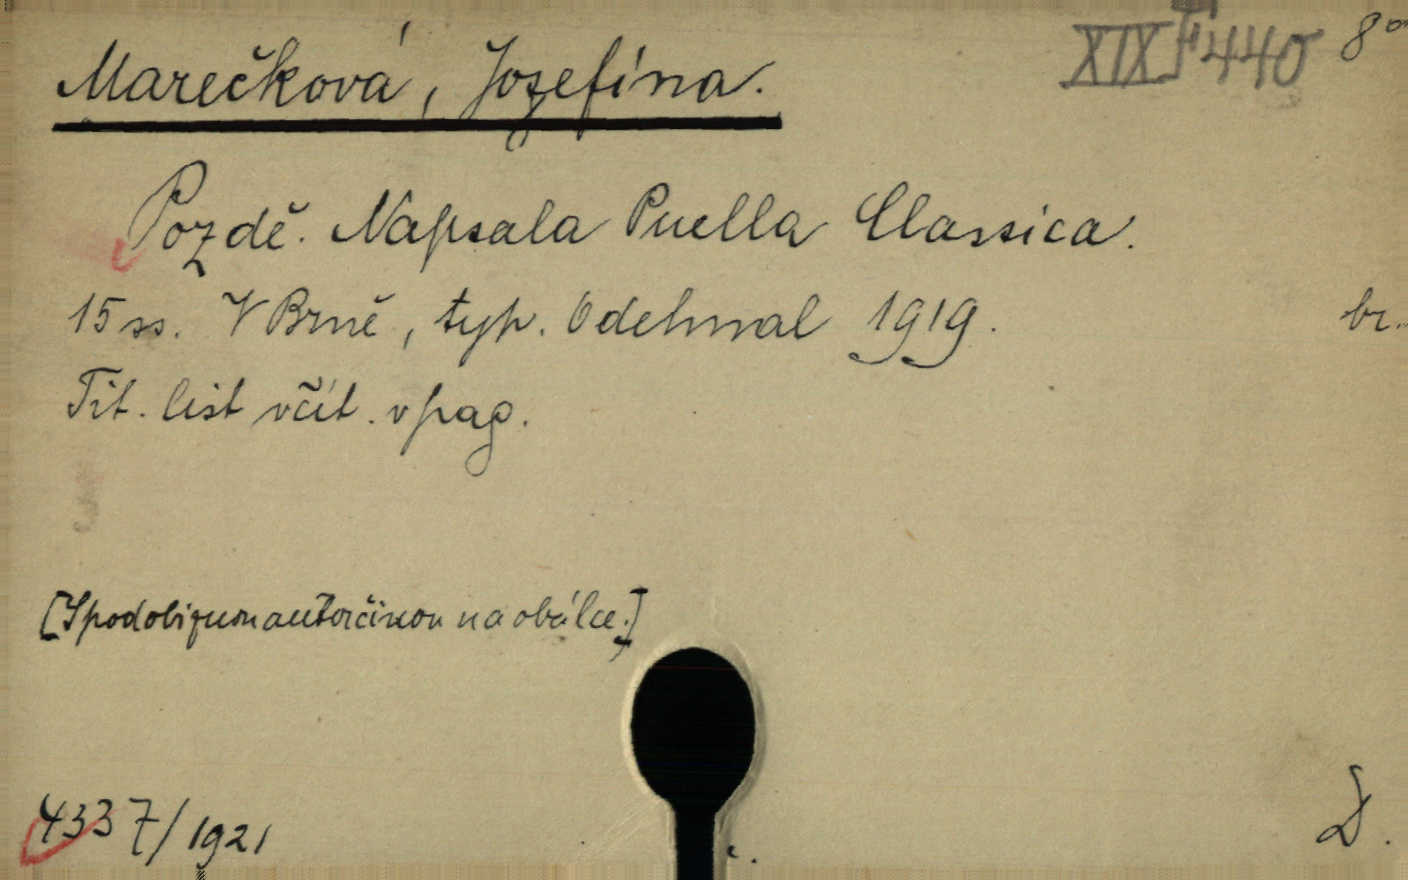 XIX F 440 8°
Marečková, Jozefína.
Pozdě. Napsala Puella Classica.
15 ss. V Brně, typ. Odehnal 1919. br.
Tit. list včít. v pag.
[S podobiznou autorčinou na obálce.]
4337/1921 D.